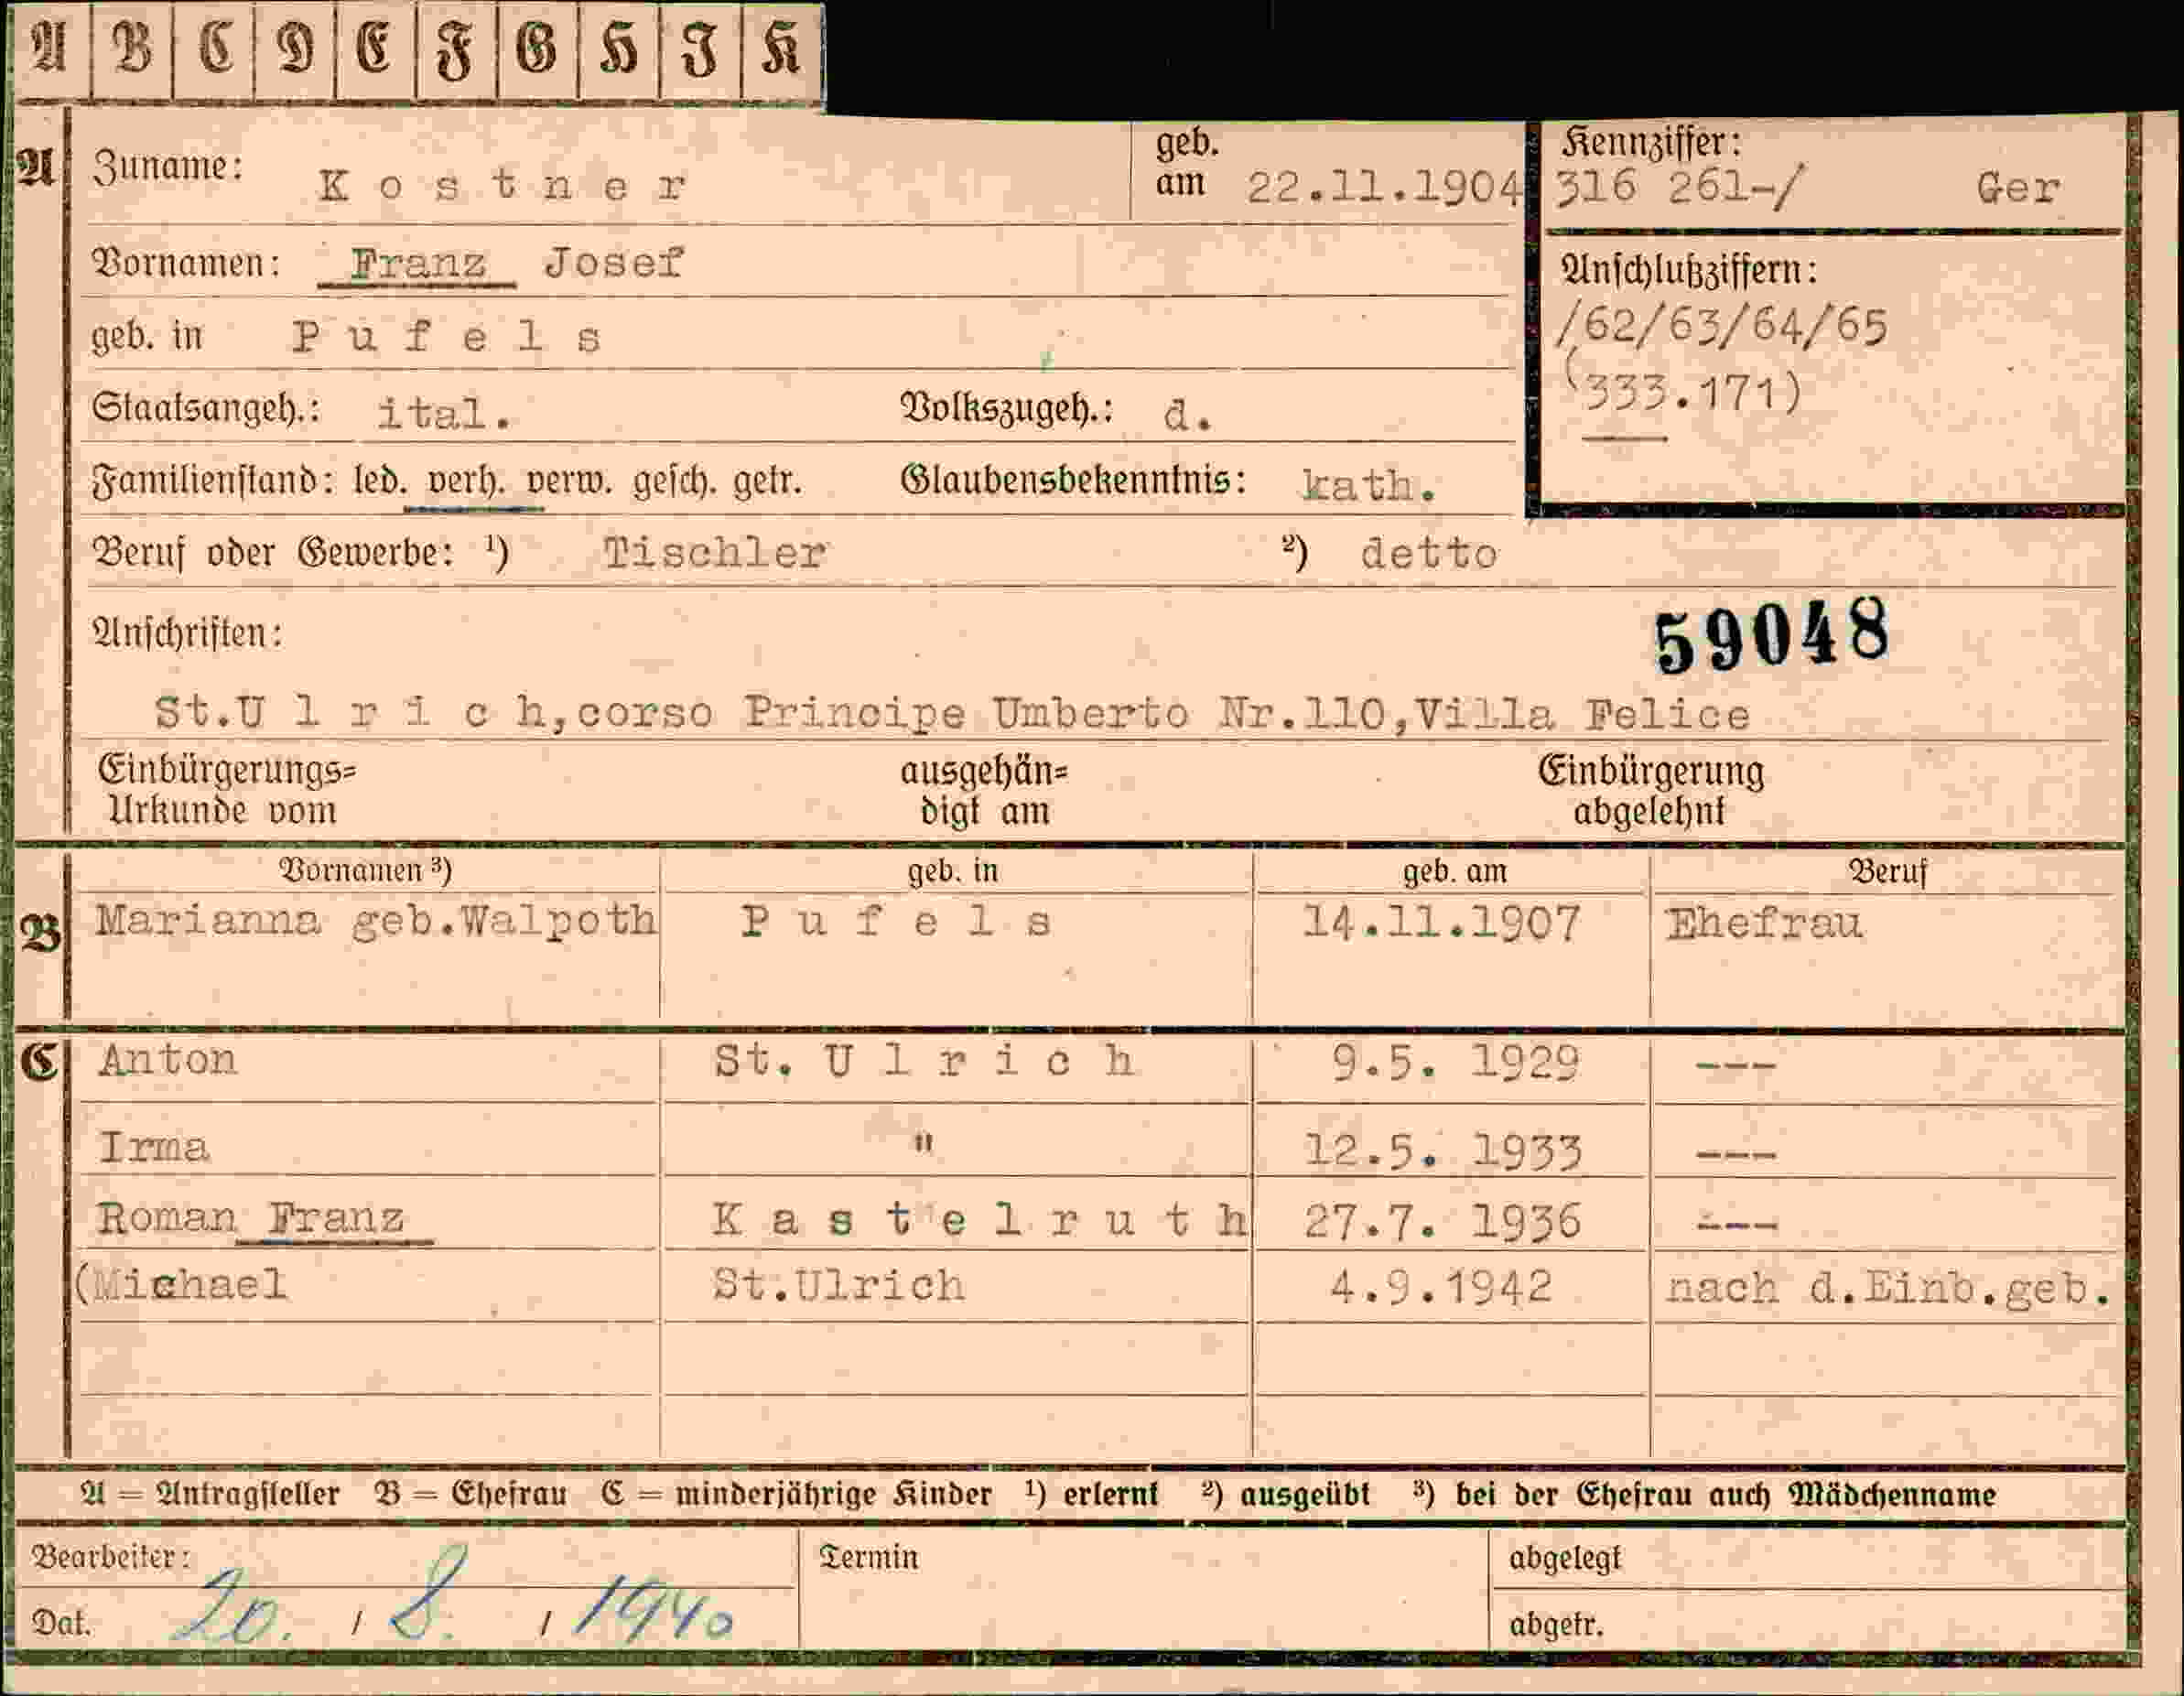 A B C D E F G H J K
A Zuname: Kostner geb. am 22.11.1904
Kennziffer: 316 261-/ Ger
Vornamen: Franz Josef
Anschlußziffern:
/62/63/64/65
(333.171)
geb. in Pufels
Staatsangeh.: ital. Volkszugeh.: d.
Familienstand: led. verh. verw. gesch. getr. Glaubensbekenntnis: kath.
Beruf oder Gewerbe: ¹) Tischler ²) detto
Anschriften: 59048
St.Ulrich,corso Principe Umberto Nr.110,Villa Felice
Einbürgerungs= ausgehän= Einbürgerung
Urkunde vom digt am abgelehnt
Vornamen ³) geb. in geb. am Beruf
B Marianna geb.Walpoth Pufels 14.11.1907 Ehefrau
C Anton St. Ulrich 9.5. 1929 ---
Irma " 12.5. 1933 ---
Roman Franz Kastelruth 27.7. 1936 ---
(Michael St.Ulrich 4.9.1942 nach d.Einb.geb.
A = Antragsteller B = Ehefrau C = minderjährige Kinder ¹) erlernt ²) ausgeübt ³) bei der Ehefrau auch Mädchenname
Bearbeiter: Termin abgelegt
Dat. 20. / 8. / 1940 abgetr.